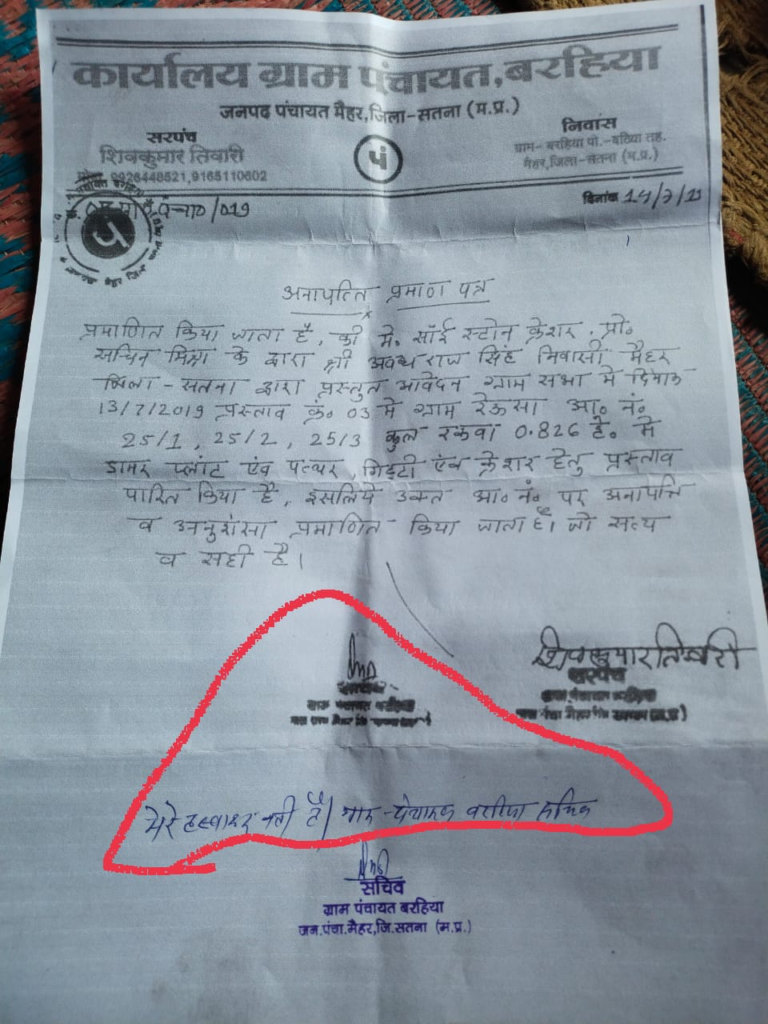 कार्यालय ग्राम पंचायत, बरहिया
जनपद पंचायत मैहर, जिला-सतना (म.प्र.)
सरपंच
शिवकुमार तिवारी
मोबा. 9926448521, 9165110602
पं
निवास
ग्राम- बरहिया पो.-बठिया तह.
मैहर, जिला-सतना (म.प्र.)
/019
दिनांक
अनापत्ति प्रमाण पत्र
प्रमाणित किया जाता है, की मे. सॉई स्टोन क्रेशर, प्रो.
सचिन मिश्रा के द्वारा श्री अवधराज सिंह निवासी मैहर
जिला-सतना द्वारा प्रस्तुत आवेदन ग्राम सभा में दिनांक
13/7/2019 प्रस्ताव क्रं. 03 में ग्राम रेऊसा आ॰ नं.
25/1, 25/2, 25/3 कुल रकवा 0.826 हे॰ में
डामर प्लांट एंव पत्थर, गिट्टी एंव क्रेशर हेतु प्रस्ताव
पारित किया है, इसलिये उक्त आ॰ नं. पर अनापत्ति
व अनुशंसा प्रमाणित किया जाता है। जो सत्य
व सही है।
शिवकुमार तिवारी
सरपंच
ग्राम पंचायत बरहिया
मेरे हस्ताक्षर नही है। ग्राम-पंचायत बरहिया सचिव
सचिव
ग्राम पंचायत बरहिया
जन.पंचा.मैहर, जि.सतना (म.प्र.)